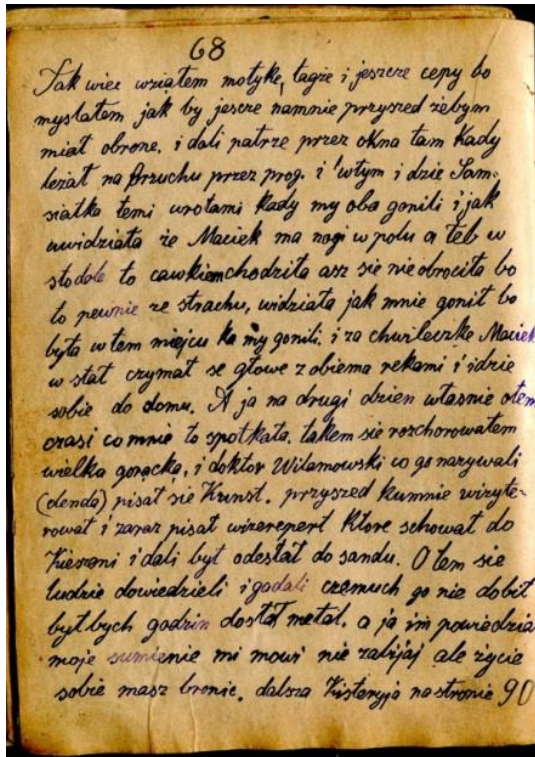 68
Tak wiec wziąłem motyke, tagże i jeszcze cepy bo
myslałem jak by jescze namnie przyszed żebym
miał obrone. i dali patrze przez okna tam kady
leżał na brzuchu przez prog. i wtym i dzie Sam-
siatka temi wrotami kady my oba gonili i jak
uwidziała że Maciek ma nogi w polu a łeb w
stodole to cawkiem chodziła asz sie nie obrociła bo
to pewnie ze strachu, widziała jak mnie gonił bo
była w tem miejcu ka my gonili. i za chwileczke Maciek
w stał czymał se głowe z obiema rekami i idzie
sobie do domu. A ja na drugi dzien własnie o tem
czasi co mnie to spotkała. takem sie rozchorowałem
wielka goracka, i doktor Witamowski co go nazywali
(denda) pisał sie Kunszt. przyszed kumnie wizyte-
rował i zaraz pisał wizerepert ktore schował do
kieszoni i dali był odesłał do sandu. O tem sie
ludzie dowiedzieli i gadali czemuch go nie dobił
był bych godzin dostał metal. a ja im powiedzia
moje sumienie mi mowi nie zabijaj ale życie
sobie masz bronic. dalsza histeryja na stronie 90